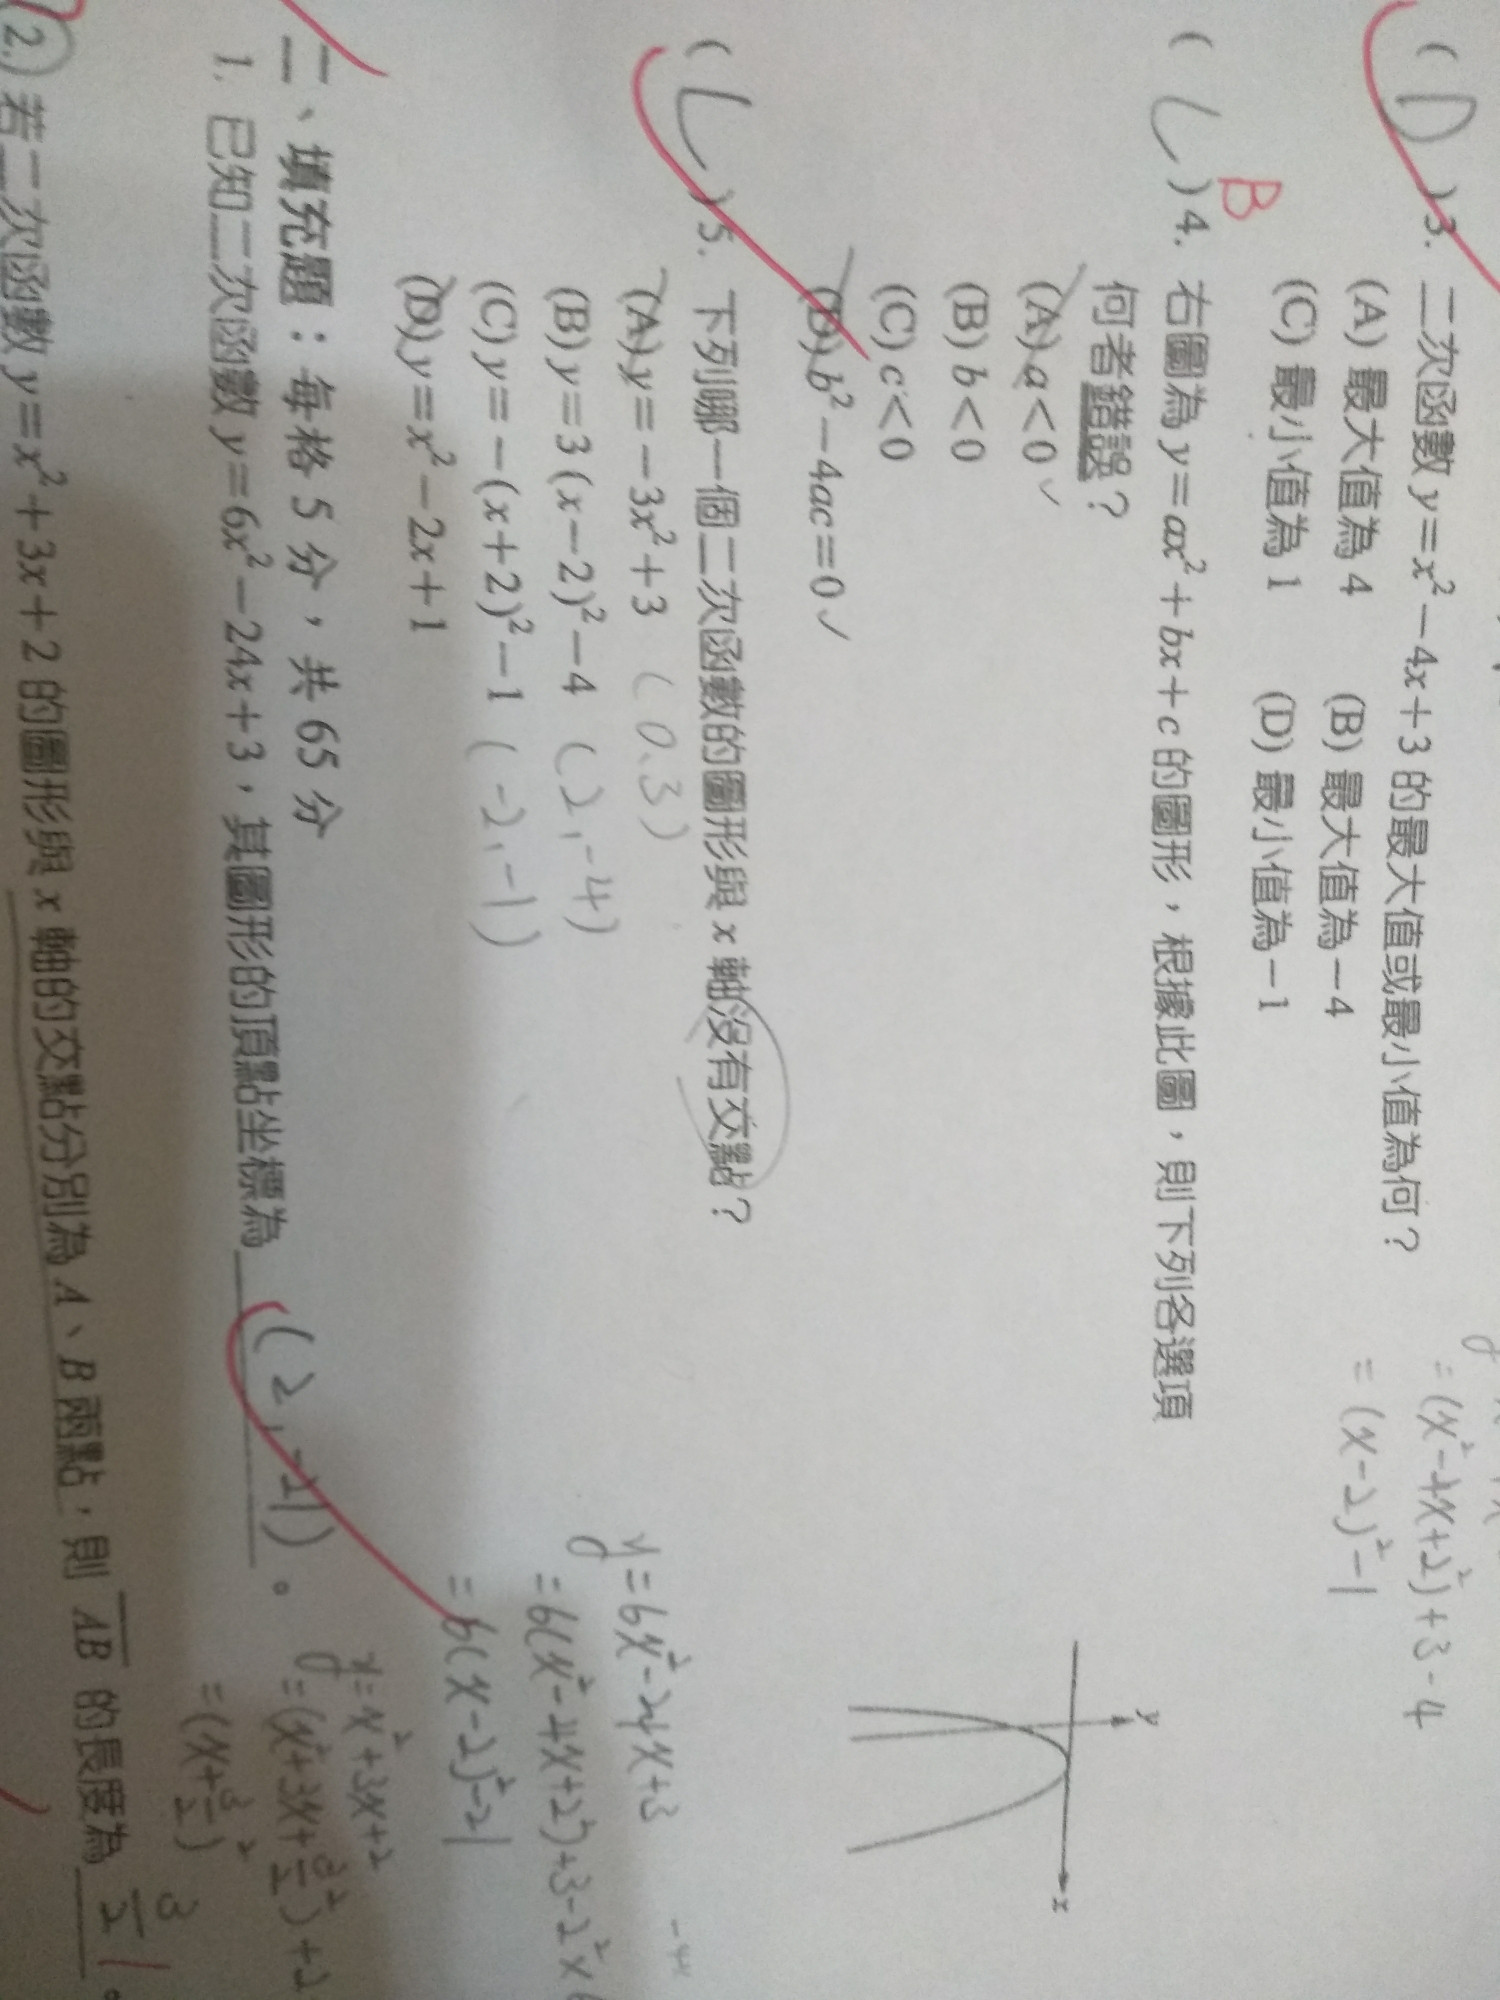 ( D )3. 二次函數 y=x²−4x+3 的最大值或最小值為何？
(A) 最大值為 4 (B) 最大值為 −4
(C) 最小值為 1 (D) 最小值為 −1
=(x²-4x+2²)+3-4
=(x-2)²-1
B
( C )4. 右圖為 y=ax²+bx+c 的圖形，根據此圖，則下列各選項
何者錯誤？
(A) a<0 ✓
(B) b<0
(C) c<0
(D) b²−4ac=0 ✓
y
x
( C )5. 下列哪一個二次函數的圖形與 x 軸沒有交點？
(A) y=−3x²+3 (0.3)
(B) y=3(x−2)²−4 (2,-4)
(C) y=−(x+2)²−1 (-2,-1)
(D) y=x²−2x+1
y=6x²-24x+3
=6(x²-4x+2²)+3-2²×6
=6(x-2)²-21
二、填充題：每格 5 分，共 65 分
1. 已知二次函數 y=6x²−24x+3，其圖形的頂點坐標為 (2,-21) 。
y=x²+3x+2
=(x²+3x+3/2²)+2
=(x+3/2)²
2. 若二次函數 y=x²+3x+2 的圖形與 x 軸的交點分別為 A、B 兩點，則 AB 的長度為 3/2 1 。